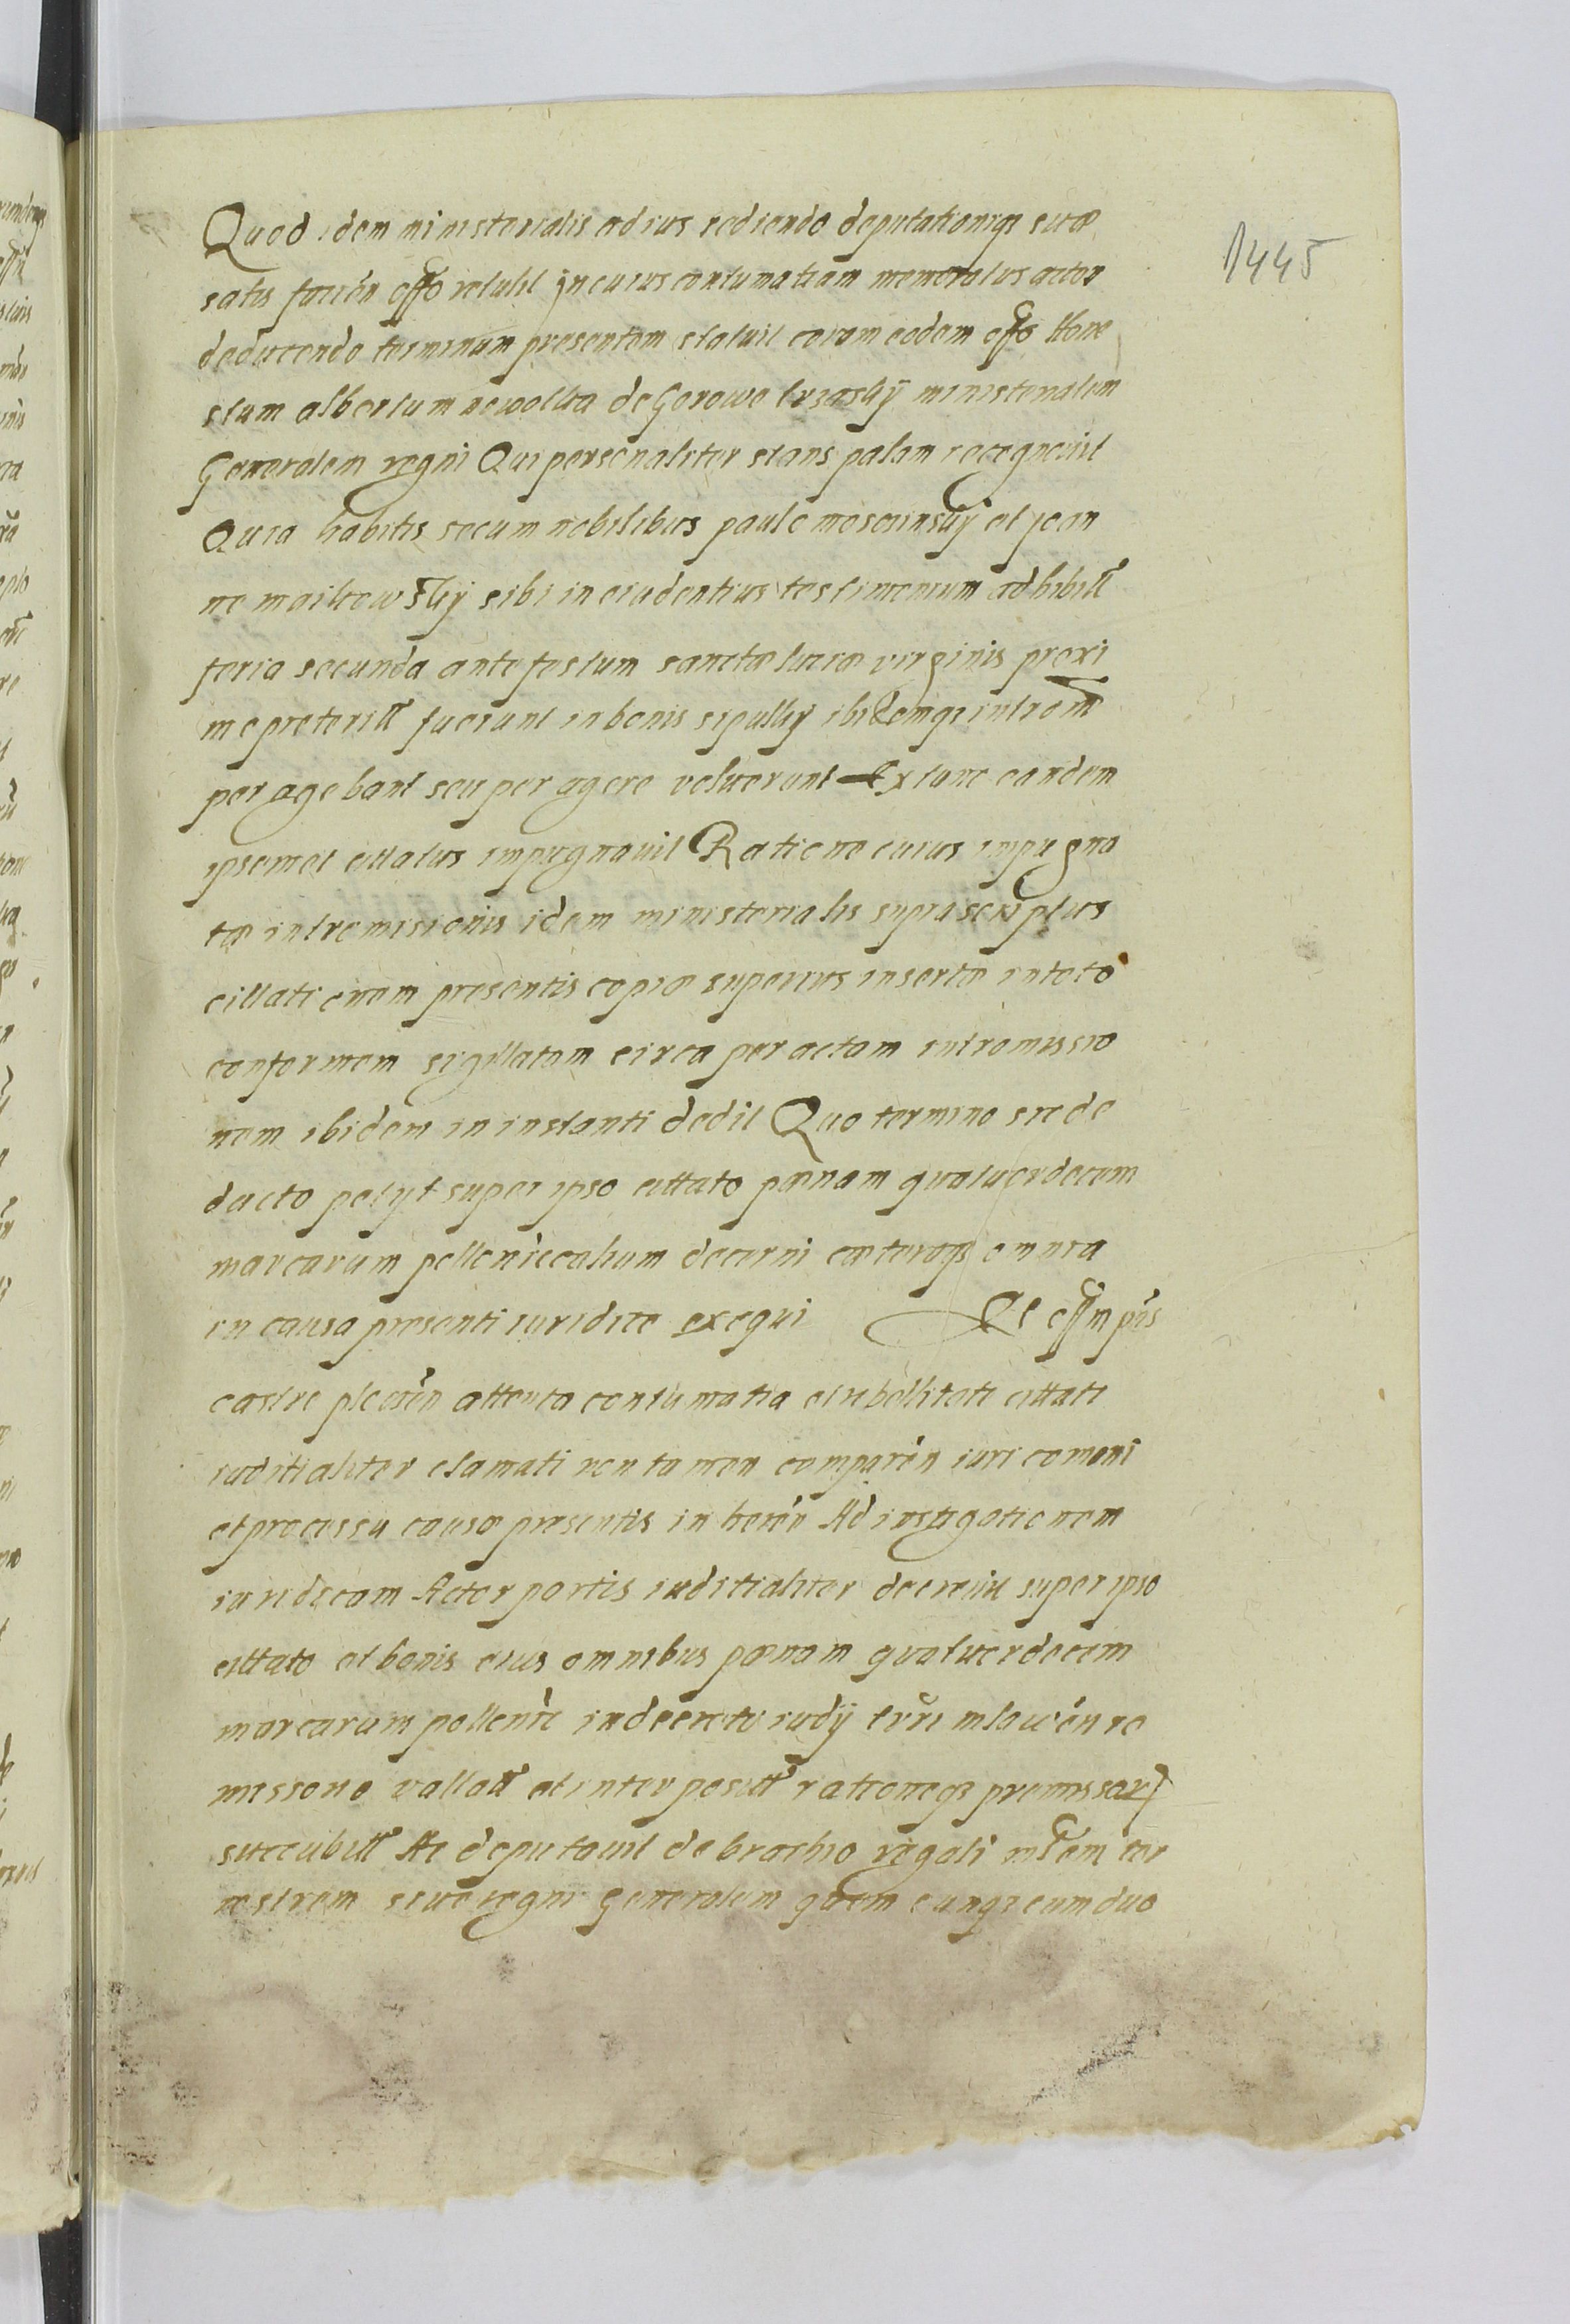 1445
Quod idem ministerialis ad ius rediendo deputationiqz suæ
satis facien offo retulit jn cuius contumatiam memoratus actor
deducendo terminum presentem statuit coram eodem offo Hone
stum albertum de Gorowo trzaskÿ ministerialem
Generalem regni Qui personaliter stans palam recognovit
Quia habitis secum nobilibus paulo et joan
ne sibi in evidentius testimonium adhibitt
feria secunda ante festum sanctæ luciæ virginis proxi
me preteritt fuerunt in bonis ibidemqz introm
peragebant seu peragere voluerunt Extunc eandem
ipsemet cittatus impugnavit Ratione cuius impugna
tæ intromisionis idem ministerialis suprascriptus
cittationem presentis copiæ superius insertæ in toto
conformem sigillatam circa peractam intromissio
nem ibidem in instanti dedit Quo termino sic de
ducto petyt super ipso cittato pænam quatuordecem
marcarum pollonicalium decerni cæteraqz omnia
in causa presenti iuridice exequi Et offm pñs
castre attenta contumatia et rebellitate cittati
iuditialiter clamati non tamen comparen iuri comoni
et processu causæ presentis in heren Ad instigationem
iuridicam Actor partis iuditialiter decrevit super ipso
cittato et bonis eius omnibus pænam quatuordecem
marcarum pollonic in decreto iudÿ trri re
missone vallatt et interpositt rationeqz premissar
succubitt Ac deputavit de brachio regali ter
restrem sive regni Generalem quemcunqz cum duo